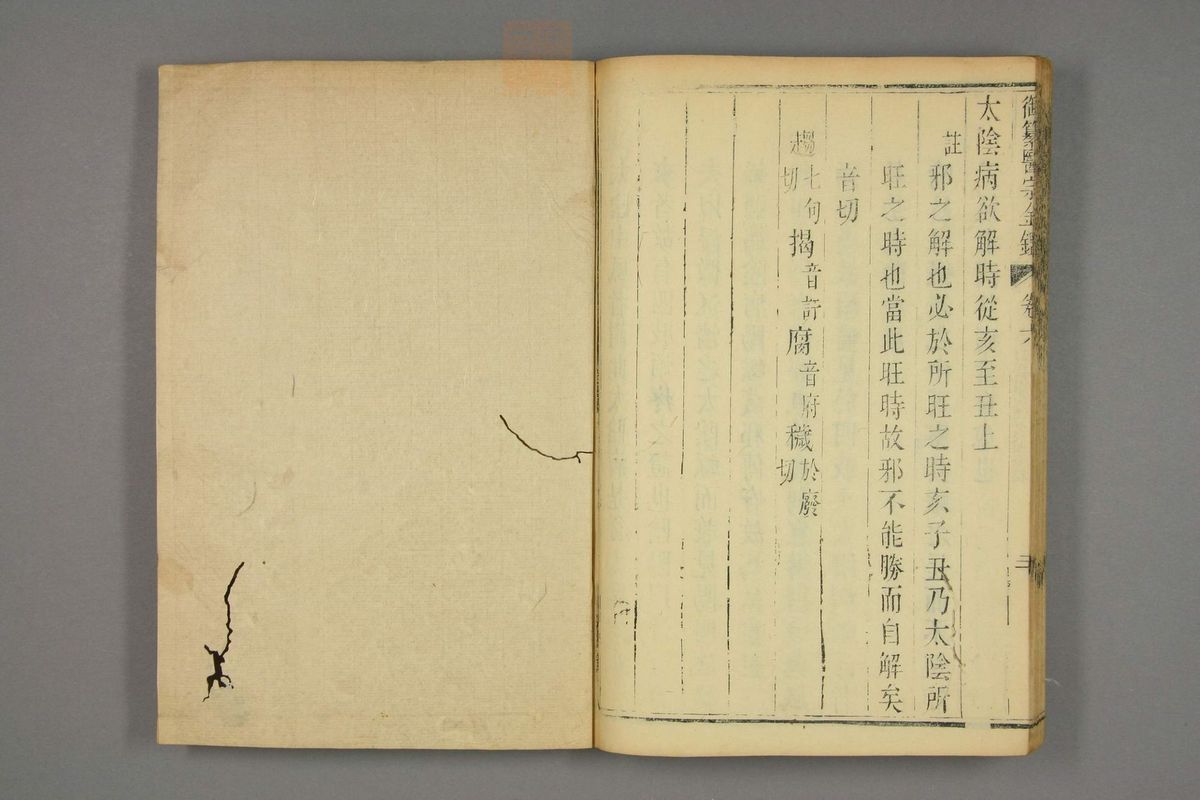 御纂醫宗金鑑 卷六
太陰病欲解時從亥至丑上
註
邪之解也必於所旺之時亥子丑乃太陰所
旺之時也當此旺時故邪不能勝而自解矣
音切
趨七句切揭音訐腐音府穢於廢切